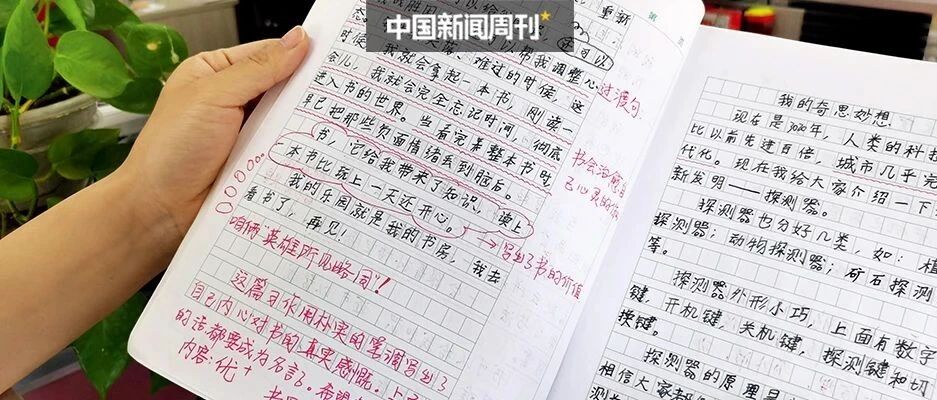 中国新闻周刊
重新
态。
还可以
可以帮我调整心
失落、难过的时候,这
时候,我就会拿起一本书,刚读一
会儿,我就会完全忘记时间,彻底
进入书的世界。当看完素整本书时,
早已把那些负面情绪丢到脑后。
书,它给我带来了知识,读上
本书比玩上一天还开心。
我的乐园就是我的书房,我去
看书了,再见!
过渡句.
书会治愈自
己心灵的
写出了书的价值
咱俩英雄所见略同!!
这篇习作用朴实的笔调写出了
自己内心对书的真实感慨.
的话都要成为名言.希望
内容:优+
我的奇思妙想.
现在是3020年,人类的科技
比以前先进百倍,城市几乎完
代化。现在我给大家介绍一下
新发明——探测器。
探测器也分好几类,如:植
探测器;动物探测器;矿石探测
等。
探测器外形小巧,上面有数字
键,开机键,关机键,探测键和切
换键。
探测器的原理是
相信大家都